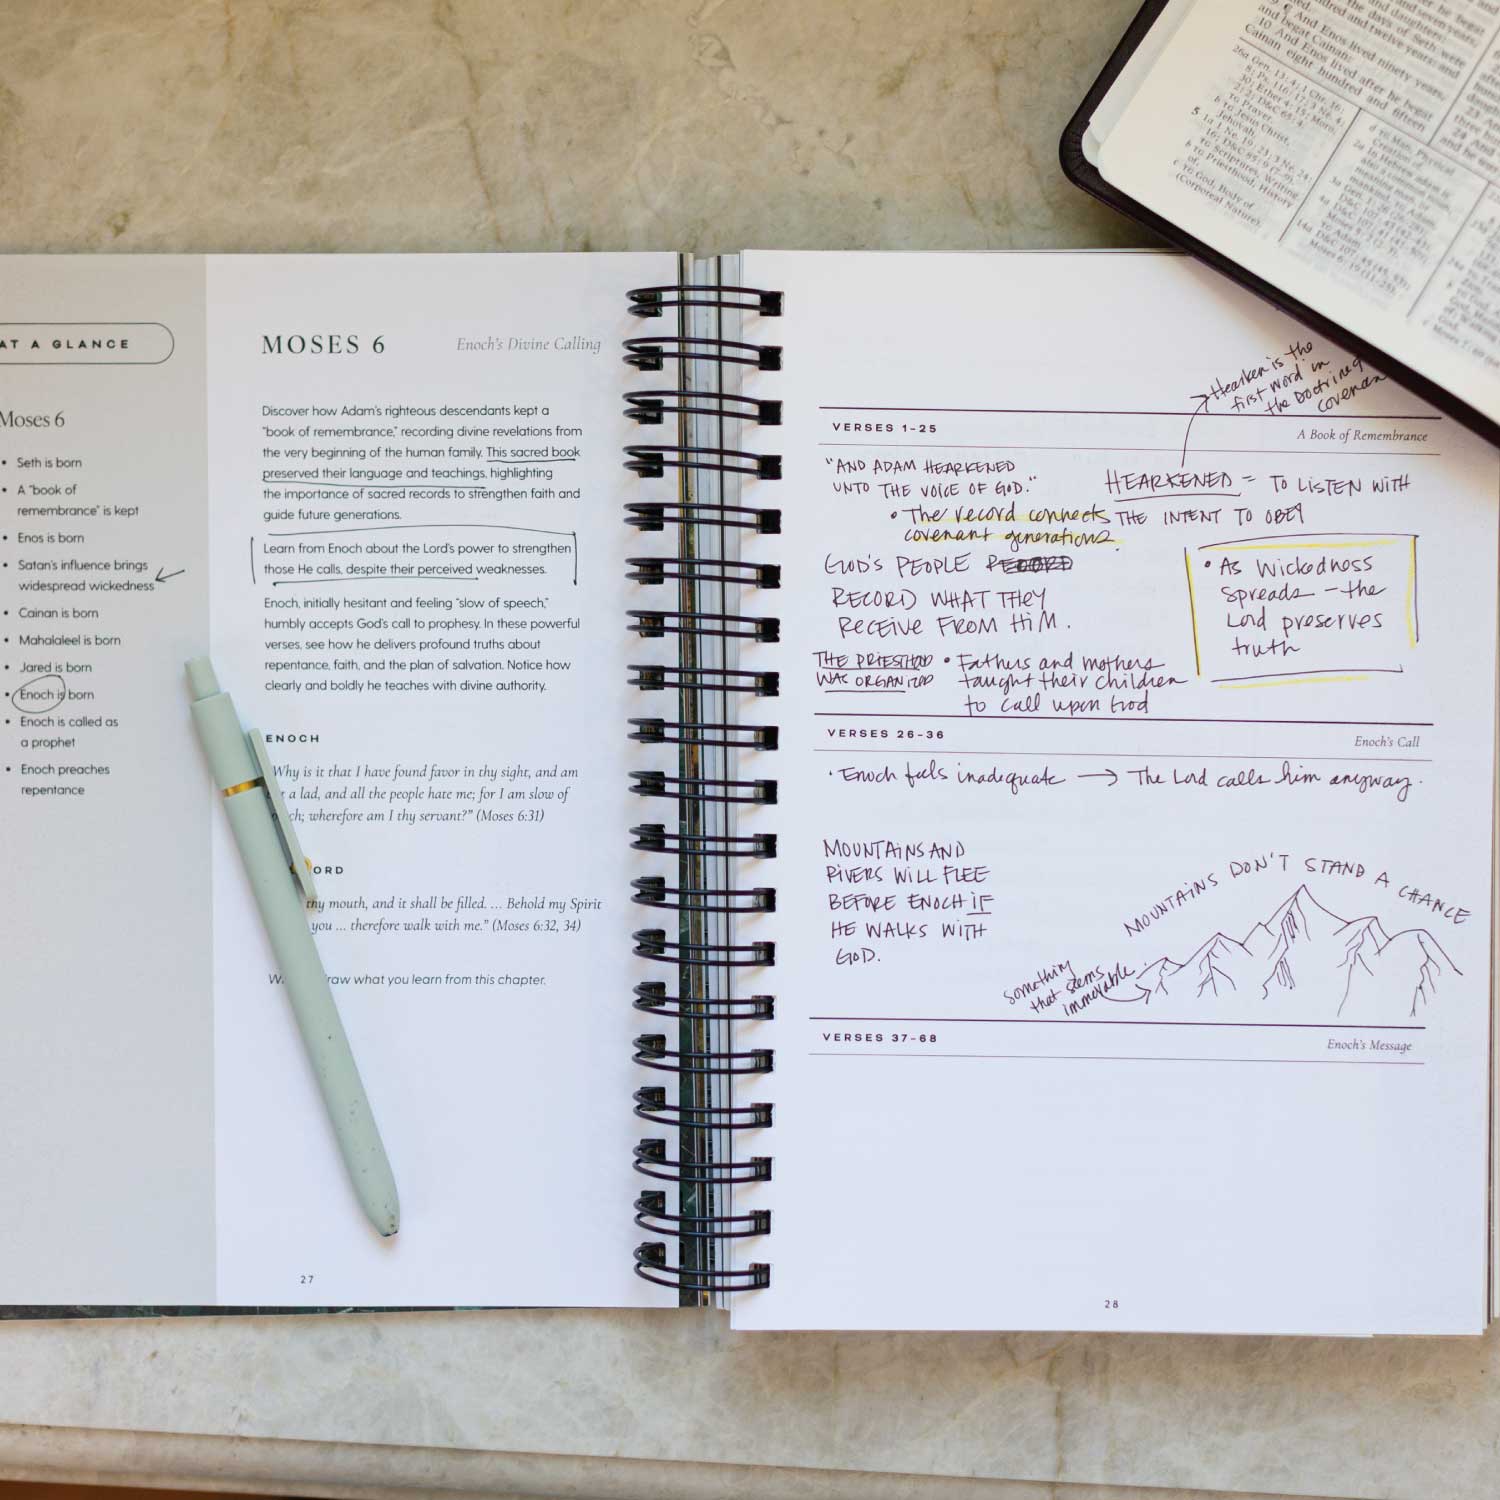 AT A GLANCE
Moses 6
• Seth is born
• A "book of
remembrance" is kept
• Enos is born
• Satan's influence brings
widespread wickedness
• Cainan is born
• Mahalaleel is born
• Jared is born
• Enoch is born
• Enoch is called as
a prophet
• Enoch preaches
repentance
MOSES 6
Enoch's Divine Calling
Discover how Adam's righteous descendants kept a
"book of remembrance," recording divine revelations from
the very beginning of the human family. This sacred book
preserved their language and teachings, highlighting
the importance of sacred records to strengthen faith and
guide future generations.
Learn from Enoch about the Lord's power to strengthen
those He calls, despite their perceived weaknesses.
Enoch, initially hesitant and feeling "slow of speech,"
humbly accepts God's call to prophesy. In these powerful
verses, see how he delivers profound truths about
repentance, faith, and the plan of salvation. Notice how
clearly and boldly he teaches with divine authority.
ENOCH
"Why is it that I have found favor in thy sight, and am
a lad, and all the people hate me; for I am slow of
wherefore am I thy servant?" (Moses 6:31)
thy mouth, and it shall be filled. ... Behold my Spirit
you ... therefore walk with me." (Moses 6:32, 34)
what you learn from this chapter.
27
Hearken is the
first word in
the Doctrine &
VERSES 1–25
A Book of Remembrance
"AND ADAM HEARKENED
UNTO THE VOICE OF GOD."
HEARKENED = TO LISTEN WITH
THE INTENT TO OBEY
• The record connects
covenant generations.
GOD'S PEOPLE
RECORD WHAT THEY
RECEIVE FROM HIM.
• As Wickedness
Spreads – the
Lord preserves
truth
THE PRIESTHOOD
WAS ORGANIZED
• Fathers and mothers
taught their children
to call upon God
VERSES 26–36
Enoch's Call
• Enoch feels inadequate → The Lord calls him anyway.
MOUNTAINS AND
RIVERS WILL FLEE
BEFORE ENOCH IF
HE WALKS WITH
GOD.
MOUNTAINS DON'T STAND A CHANCE
Something
that seems
immovable.
VERSES 37–68
Enoch's Message
28
And Enos lived ninety years,
and begat Cainan:
10 And Enos lived after he begat
Cainan eight hundred and fifteen